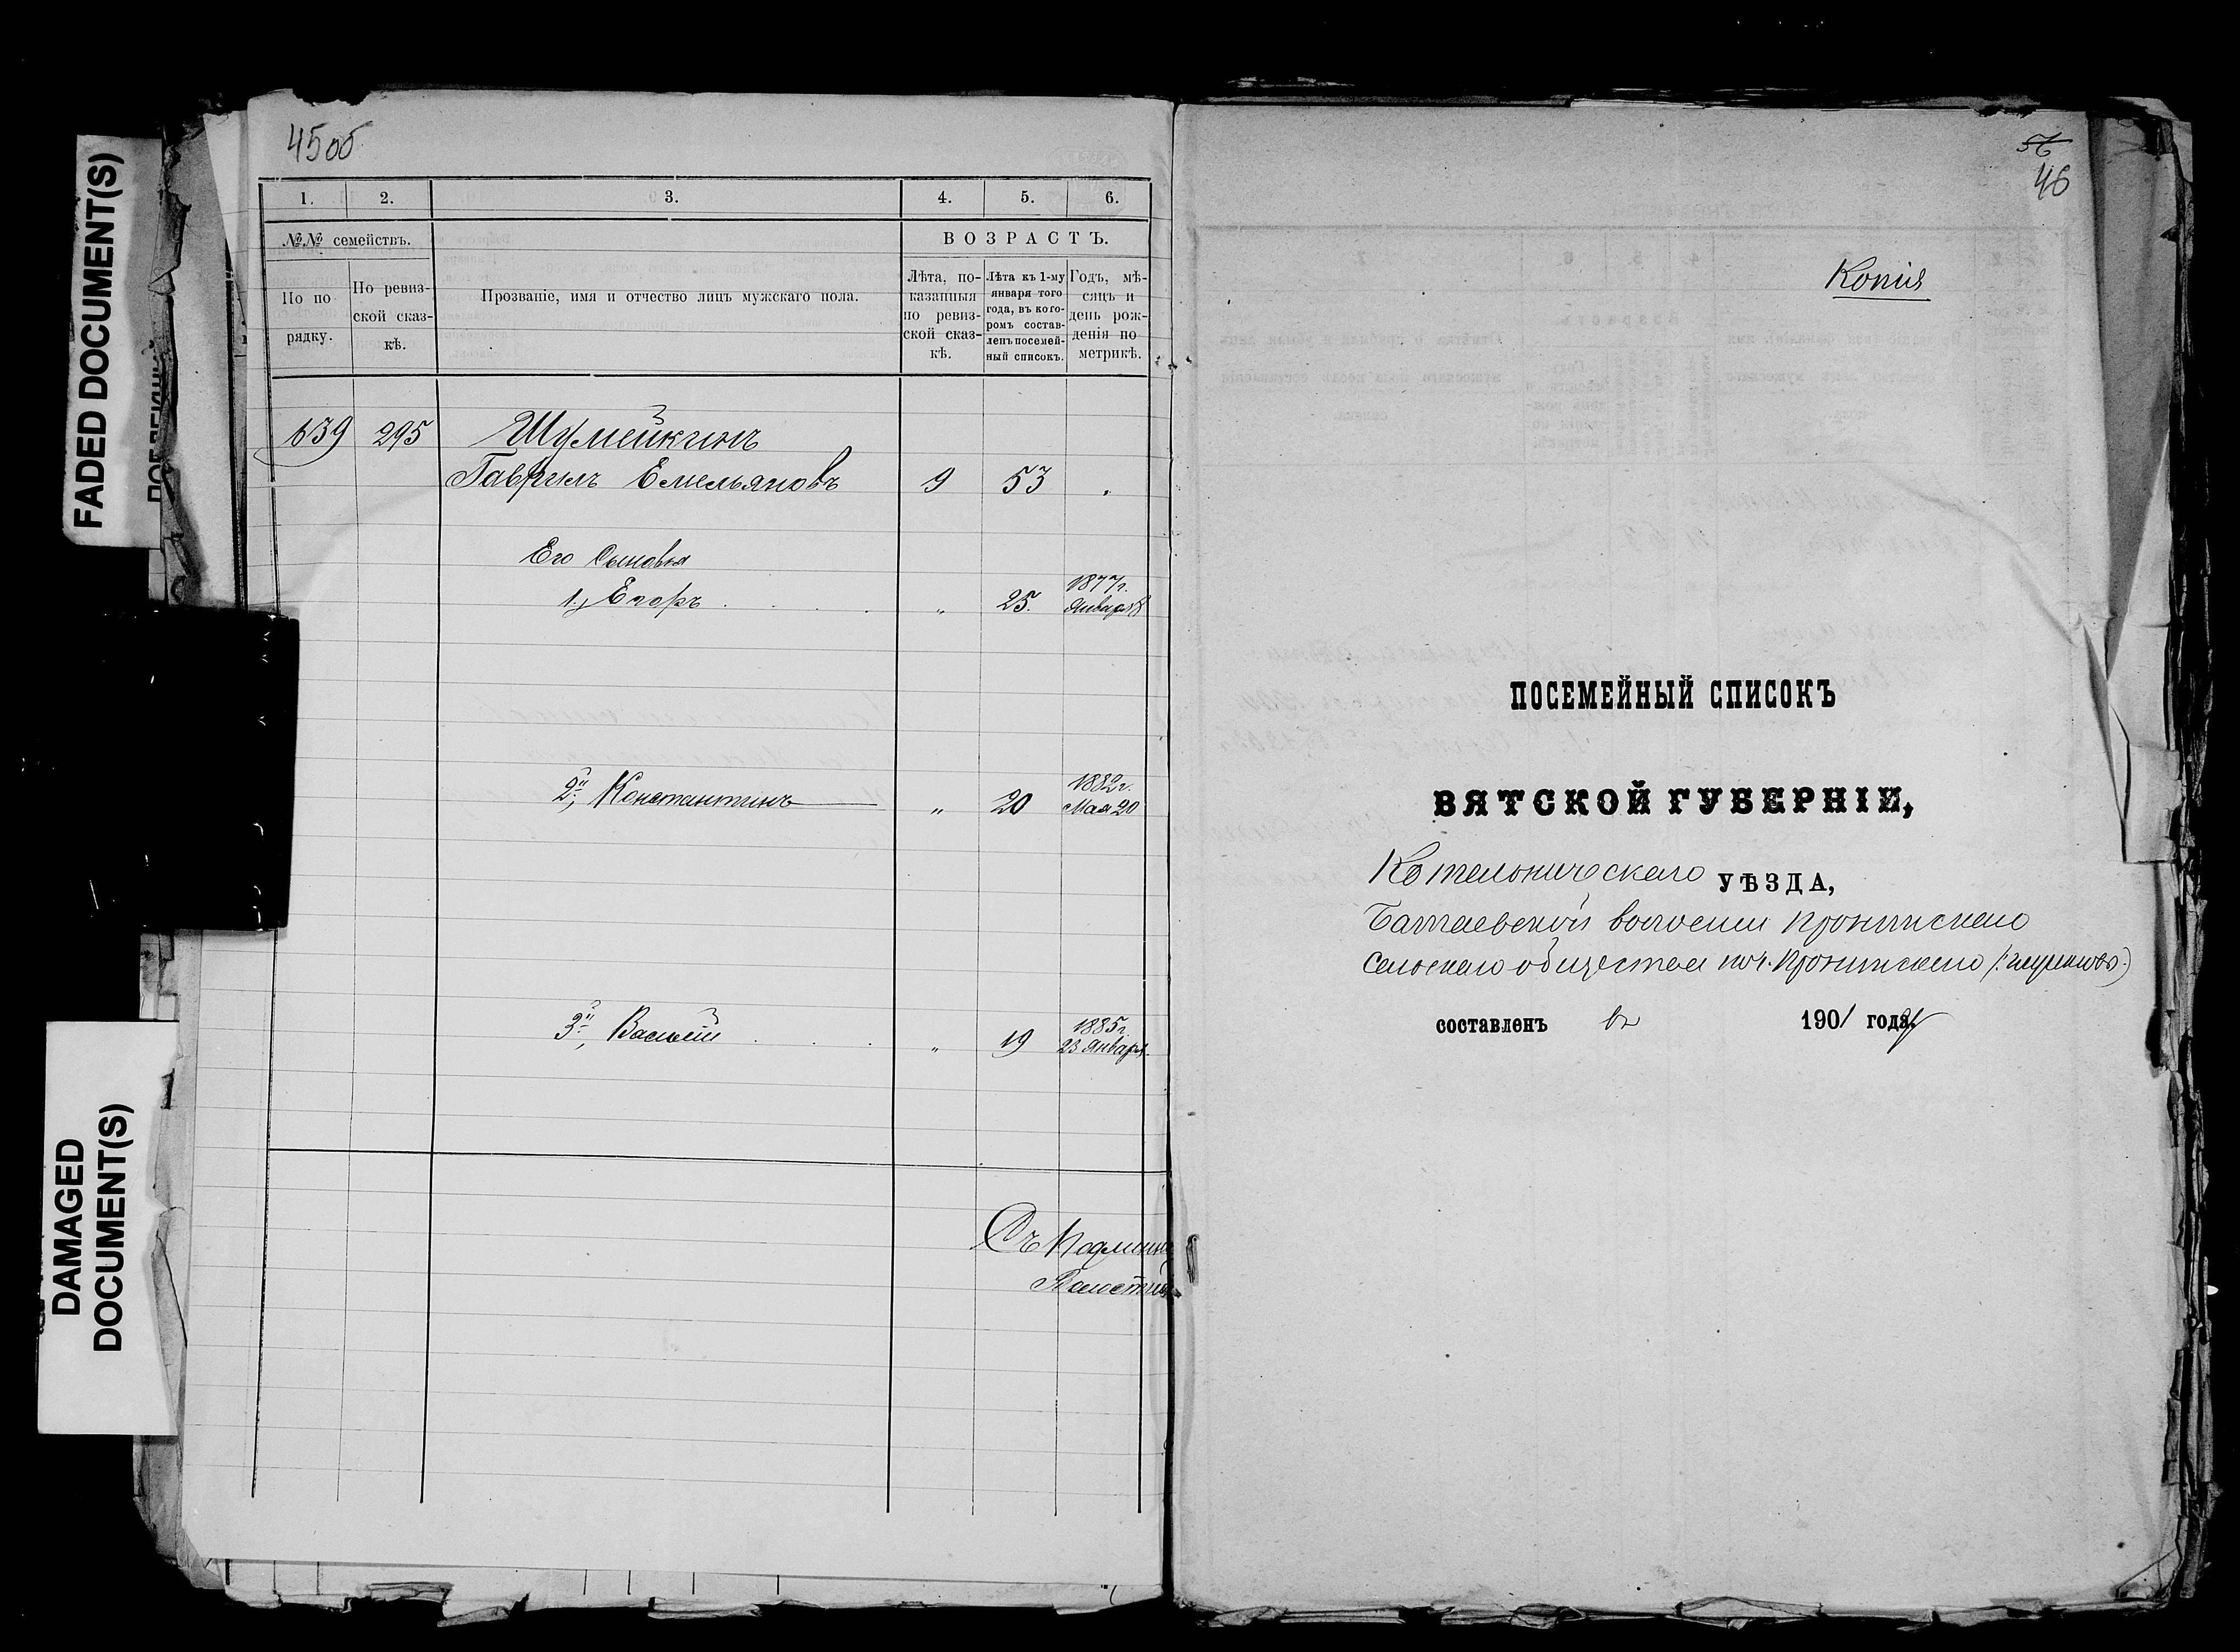 FADED DOCUMENT(S)
DAMAGED
DOCUMENT(S)
45об
1. 2. 3. 4. 5. 6.
№№ семействъ.
ВОЗРАСТЪ.
По по-
рядку.
По ревиз-
ской сказ-
кѣ.
Прозваніе, имя и отчество лицъ мужскаго пола.
Лѣта, по-
казанныя
по ревиз-
ской сказ-
кѣ.
Лѣта къ 1-му
января того
года, въ кото-
ромъ состав-
ленъ посемей-
ный списокъ.
Годъ, мѣ-
сяцъ и
день рож-
денія по
метрикѣ.
639 295 Шумейкинъ
Гаврилъ Емельяновъ 9 53
Его Сыновья
1, Егоръ " 25. 1877г.
Января 8
2й, Константинъ " 20 1882г.
Мая 20
3й, Василій " 19 1885г.
23 Января.
Съ Подлинн
56
46
Копія
ПОСЕМЕЙНЫЙ СПИСОКЪ
ВЯТСКОЙ ГУБЕРНІИ,
Котельническаго УѢЗДА,
Батаевской волости Пронинскаго
сельскаго общества поч. Пронинскаго
составленъ въ 1901 года.